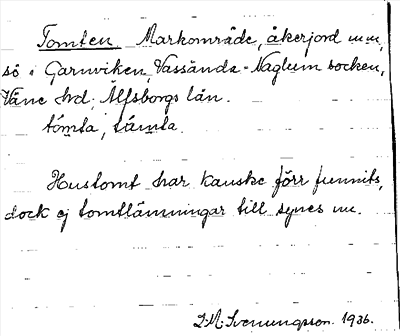 Tomten. Markområde, åkerjord m.m,
sö i Garnviken, Vassända-Naglum socken,
Väne hrd; Älfsborgs län.
tómta, tåmta.
Hustomt har kanske förr funnits,
dock ej tomtlämningar till synes nu.
J. M. Svenungsson. 1936.